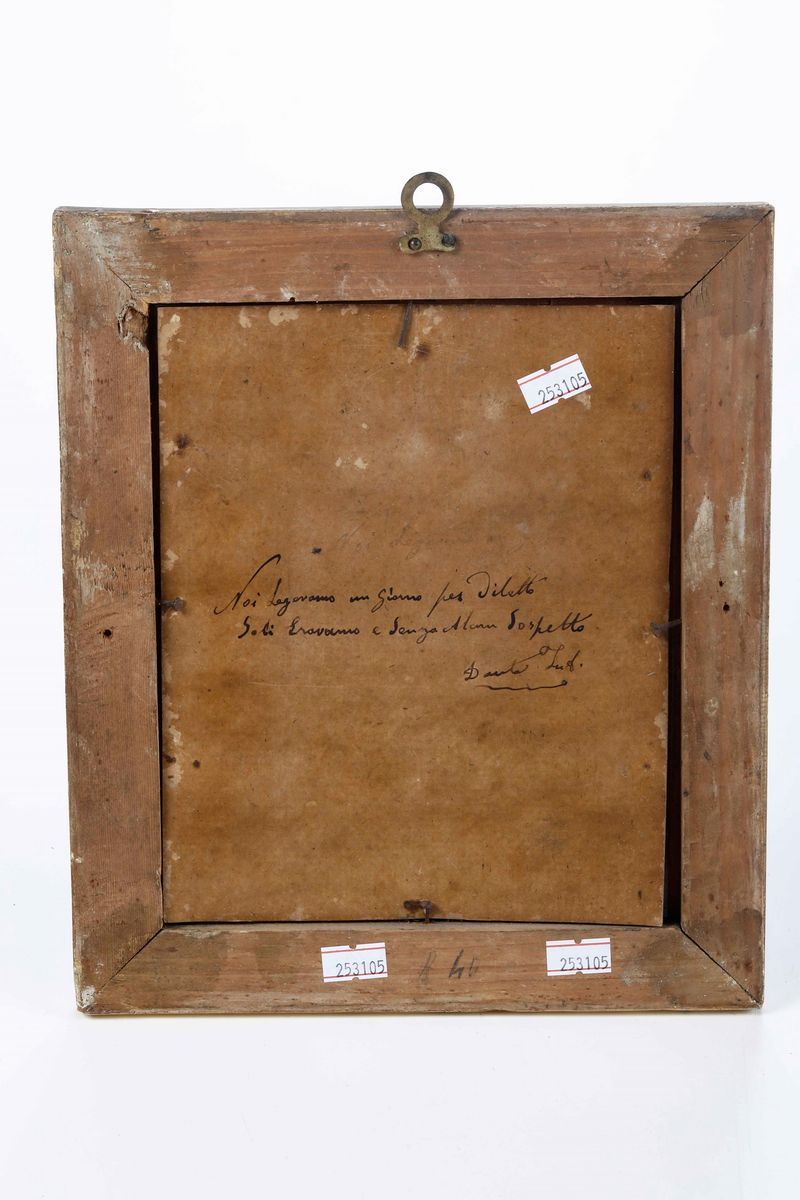 253105
Noi Legevamo un Giorno per Diletto
Soli Eravamo e Senza Alcun Sospetto.
Dante Inf.
253105
253105